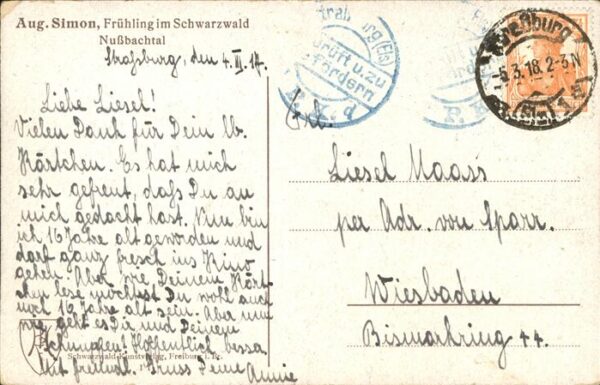 Aug. Simon, Frühling im Schwarzwald
Nußbachtal
Straßburg, den 4. III. 18.
Liebe Liesel!
Vielen Dank für Dein lb.
Kärtchen. Es hat mich
sehr gefreut, daß Du an
mich gedacht hast. Nun bin
ich 16 Jahre alt geworden und
darf ganz frech ins Kino
gehen. Aber wie Deinem Kärt-
chen lese möchtest Du wohl auch
noch 16 Jahre alt sein. Aber nun
wie geht es Dir und Deinem
Schnupfen? Hoffentlich besser.
Mit freundl. Gruss Deine
Annie
Schwarzwald-Kunstverlag, Freiburg i. Br.
Straßburg (Els)
Geprüft u. zu
befördern
P. K.
Straßburg
-5.3.18.2-3N
(Els.)
Frl.
Liesel Maass
per Adr. von Sparr.
Wiesbaden
Bismarkring 44.